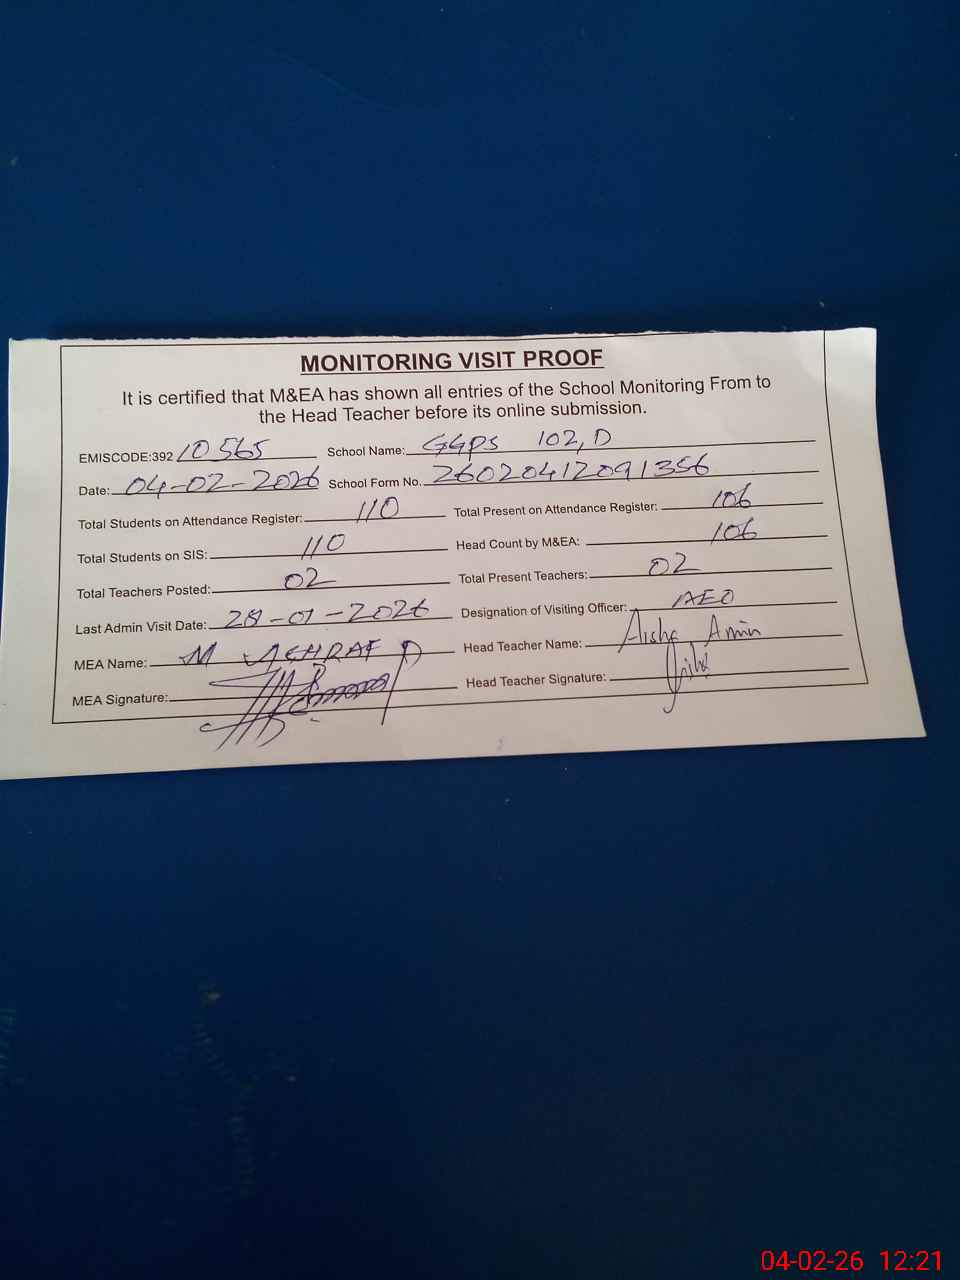 MONITORING VISIT PROOF
It is certified that M&EA has shown all entries of the School Monitoring From to
the Head Teacher before its online submission.
EMISCODE:392 10565 School Name: GGPS 102, D
Date: 04-02-2026 School Form No. 26020412091356
Total Students on Attendance Register: 110 Total Present on Attendance Register: 106
Total Students on SIS: 110 Head Count by M&EA: 106
Total Teachers Posted: 02 Total Present Teachers: 02
Last Admin Visit Date: 28-01-2026 Designation of Visiting Officer: AEO
MEA Name: M ASHRAF D Head Teacher Name: Aisha Amin
MEA Signature: Head Teacher Signature:
04-02-26 12:21